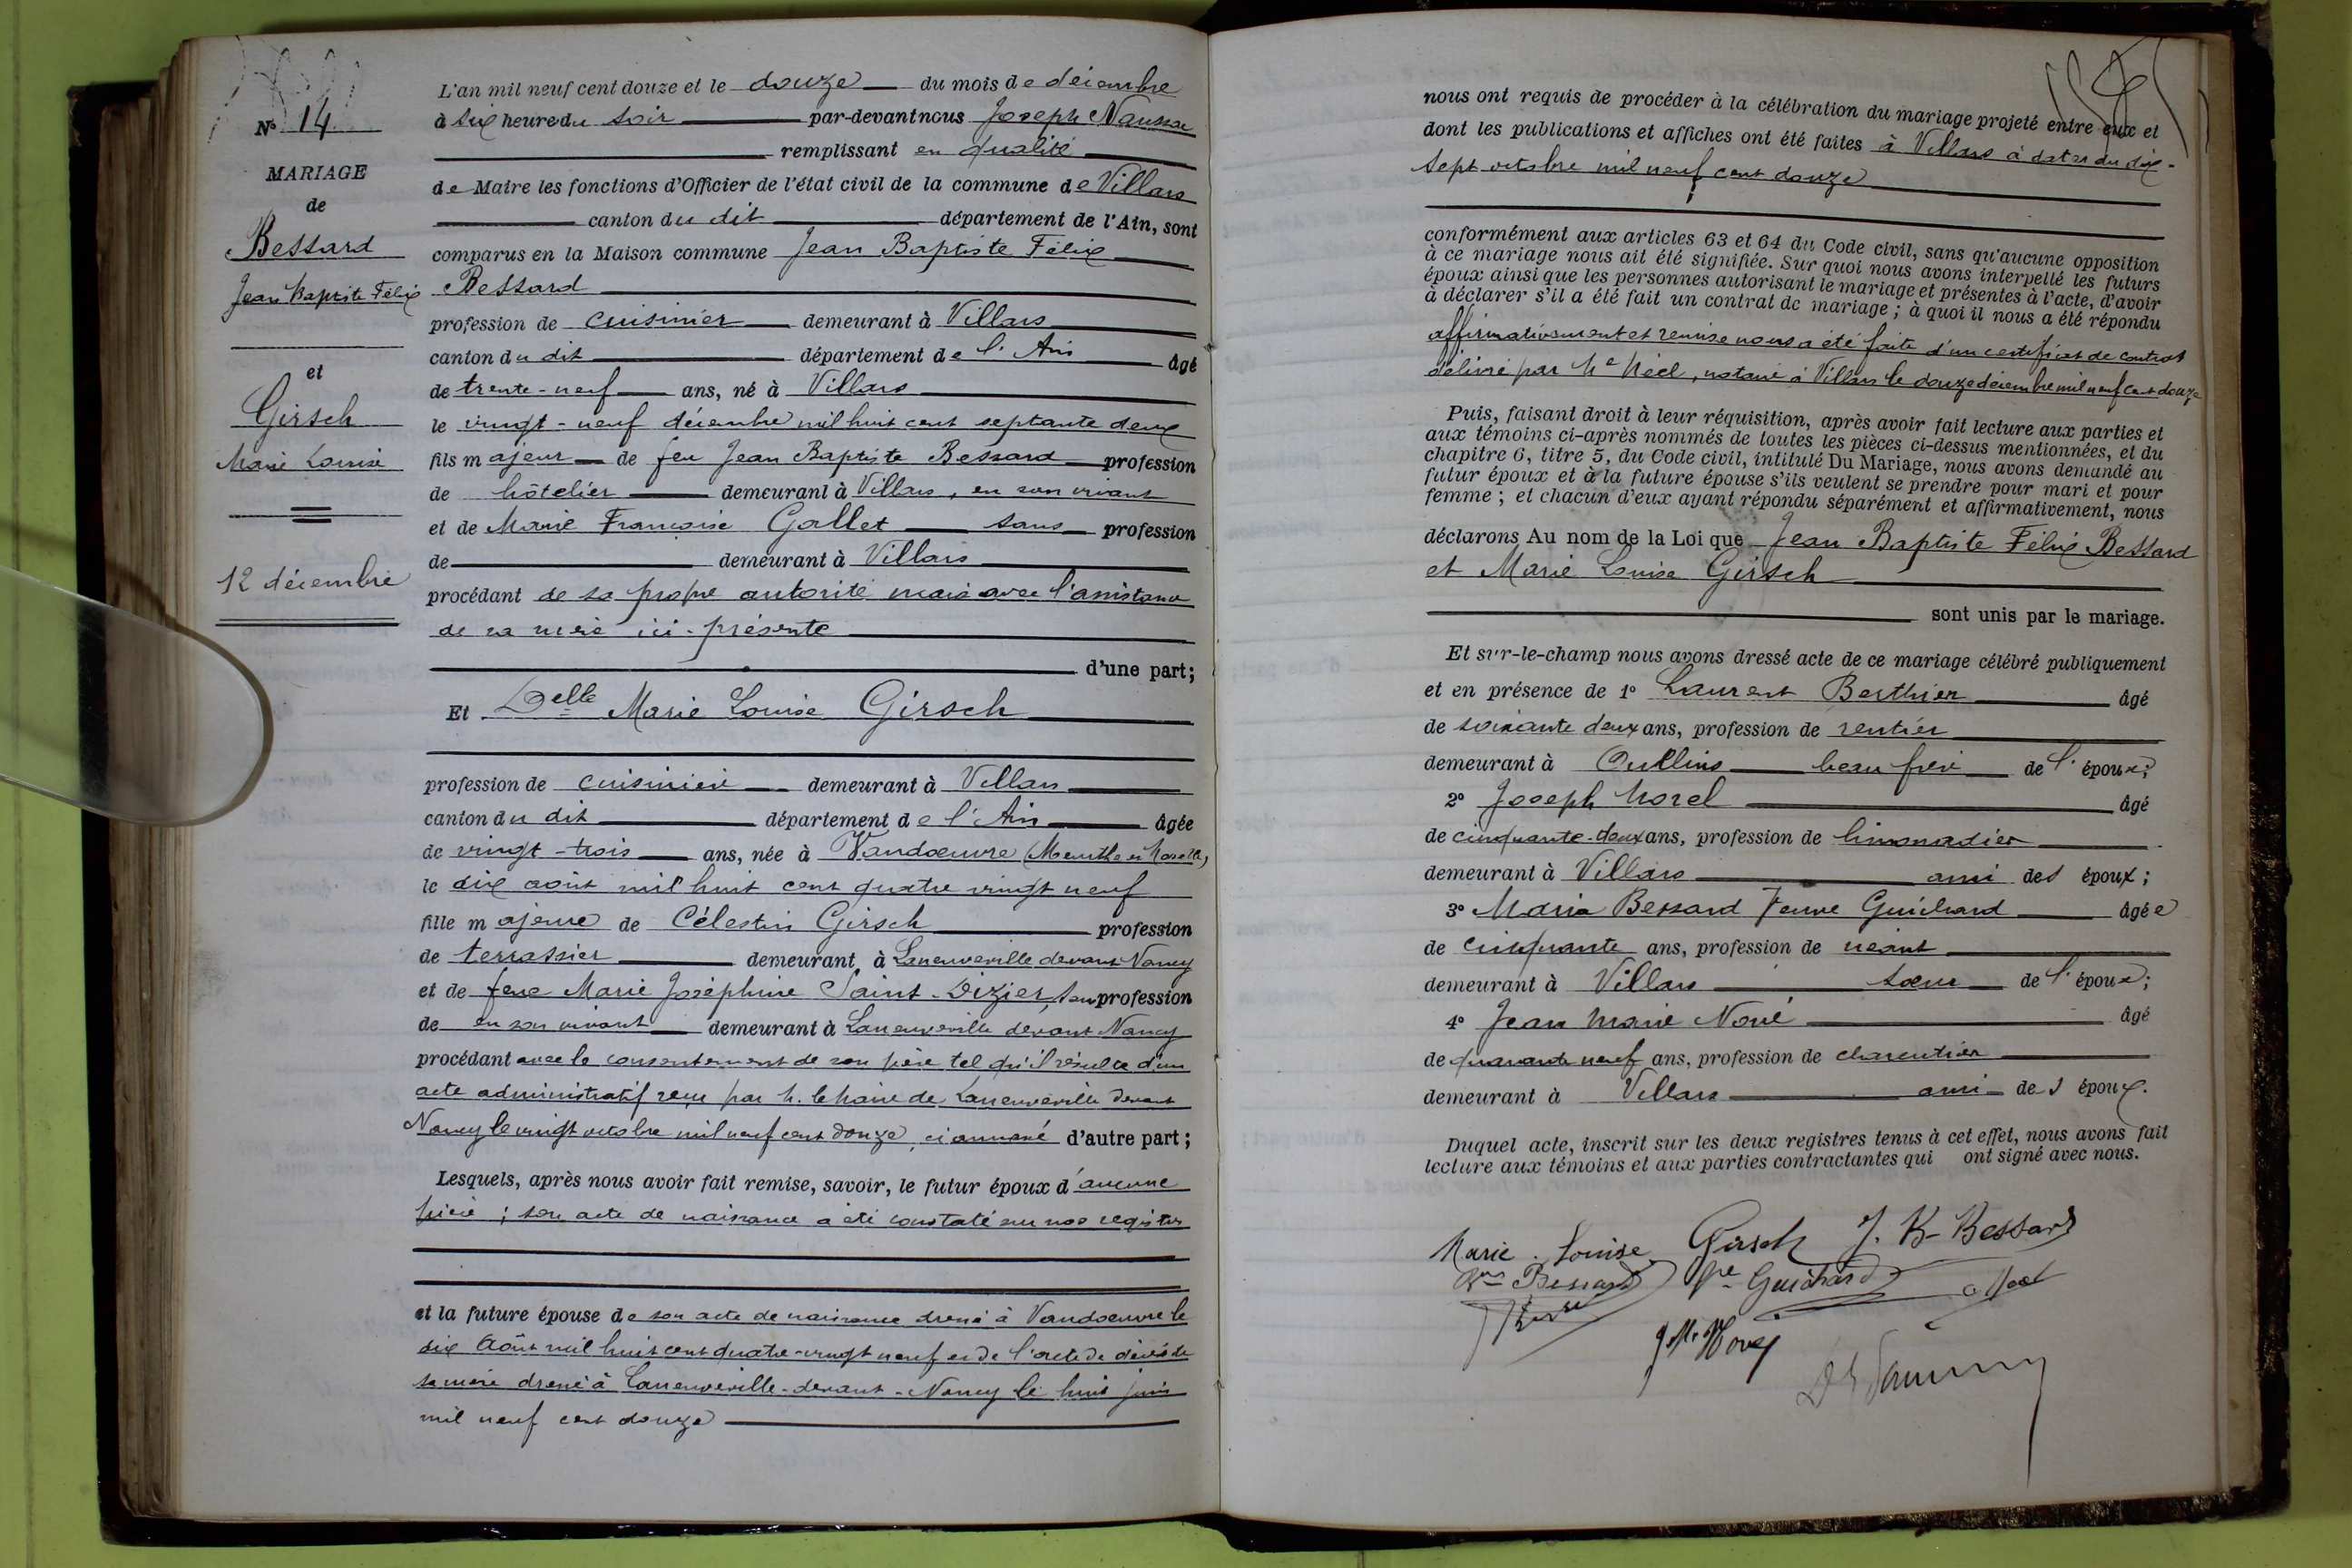 N° 14
MARIAGE
de
Bessard
Jean Baptiste Félix
et
Girsch
Marie Louise
12 décembre
L'an mil neuf cent douze et le douze du mois de décembre
à six heures du soir par-devant nous Joseph
remplissant en qualité
de Maire les fonctions d'Officier de l'état civil de la commune de Villars
canton du dit département de l'Ain, sont
comparus en la Maison commune Jean Baptiste Félix
Bessard
profession de cuisinier demeurant à Villars
canton du dit département de l'Ain âgé
de trente-neuf ans, né à Villars
le vingt-neuf décembre mil huit cent septante deux
fils majeur de feu Jean Baptiste Bessard profession
de hôtelier demeurant à Villars, en son vivant
et de Marie Françoise Gallet sans profession
de demeurant à Villars
procédant de sa propre autorité mais avec l'assistance
de sa mère ici-présente
d'une part;
Et Delle Marie Louise Girsch
profession de cuisinière demeurant à Villars
canton du dit département de l'Ain âgée
de vingt-trois ans, née à Vandoeuvre (Meurthe et Moselle)
le dix août mil huit cent quatre vingt neuf
fille majeure de Célestin Girsch profession
de terrassier demeurant à Laneuveville devant Nancy
et de feue Marie Joséphine Saint-Dizier, sans profession
de en son vivant demeurant à Laneuveville devant Nancy
procédant avec le consentement de son père tel qu'il résulte d'un
acte administratif reçu par M. le Maire de Laneuveville devant
Nancy le vingt octobre mil neuf cent douze, ci annexé d'autre part;
Lesquels, après nous avoir fait remise, savoir, le futur époux d'aucune
pièce ; son acte de naissance a été constaté sur nos registres
et la future épouse de son acte de naissance dressé à Vandoeuvre le
dix Août mil huit cent quatre-vingt neuf et de l'acte de décès de
sa mère dressé à Laneuveville-devant-Nancy le huit juin
mil neuf cent douze
nous ont requis de procéder à la célébration du mariage projeté entre eux et
dont les publications et affiches ont été faites à Villars à dater du dix-
sept octobre mil neuf cent douze
conformément aux articles 63 et 64 du Code civil, sans qu'aucune opposition
à ce mariage nous ait été signifiée. Sur quoi nous avons interpellé les futurs
époux ainsi que les personnes autorisant le mariage et présentes à l'acte, d'avoir
à déclarer s'il a été fait un contrat de mariage ; à quoi il nous a été répondu
affirmativement et remise nous a été faite d'un certificat de contrat
délivré par Me Néel, notaire à Villars le douze décembre mil neuf cent douze
Puis, faisant droit à leur réquisition, après avoir fait lecture aux parties et
aux témoins ci-après nommés de toutes les pièces ci-dessus mentionnées, et du
chapitre 6, titre 5, du Code civil, intitulé Du Mariage, nous avons demandé au
futur époux et à la future épouse s'ils veulent se prendre pour mari et pour
femme ; et chacun d'eux ayant répondu séparément et affirmativement, nous
déclarons Au nom de la Loi que Jean Baptiste Félix Bessard
et Marie Louise Girsch
sont unis par le mariage.
Et sur-le-champ nous avons dressé acte de ce mariage célébré publiquement
et en présence de 1° Laurent Berthier âgé
de soixante deux ans, profession de rentier
demeurant à Oullins beau frère de l'époux;
2° Joseph Morel âgé
de cinquante-deux ans, profession de limonadier
demeurant à Villars ami des époux ;
3° Maria Bessard Veuve Guichard âgée
de cinquante ans, profession de néant
demeurant à Villars soeur de l'époux;
4° Jean Marie Nové âgé
de quarante neuf ans, profession de charcutier
demeurant à Villars ami des époux.
Duquel acte, inscrit sur les deux registres tenus à cet effet, nous avons fait
lecture aux témoins et aux parties contractantes qui ont signé avec nous.
Marie Louise Girsch J. B. Bessard
Bessard Ve Guichard